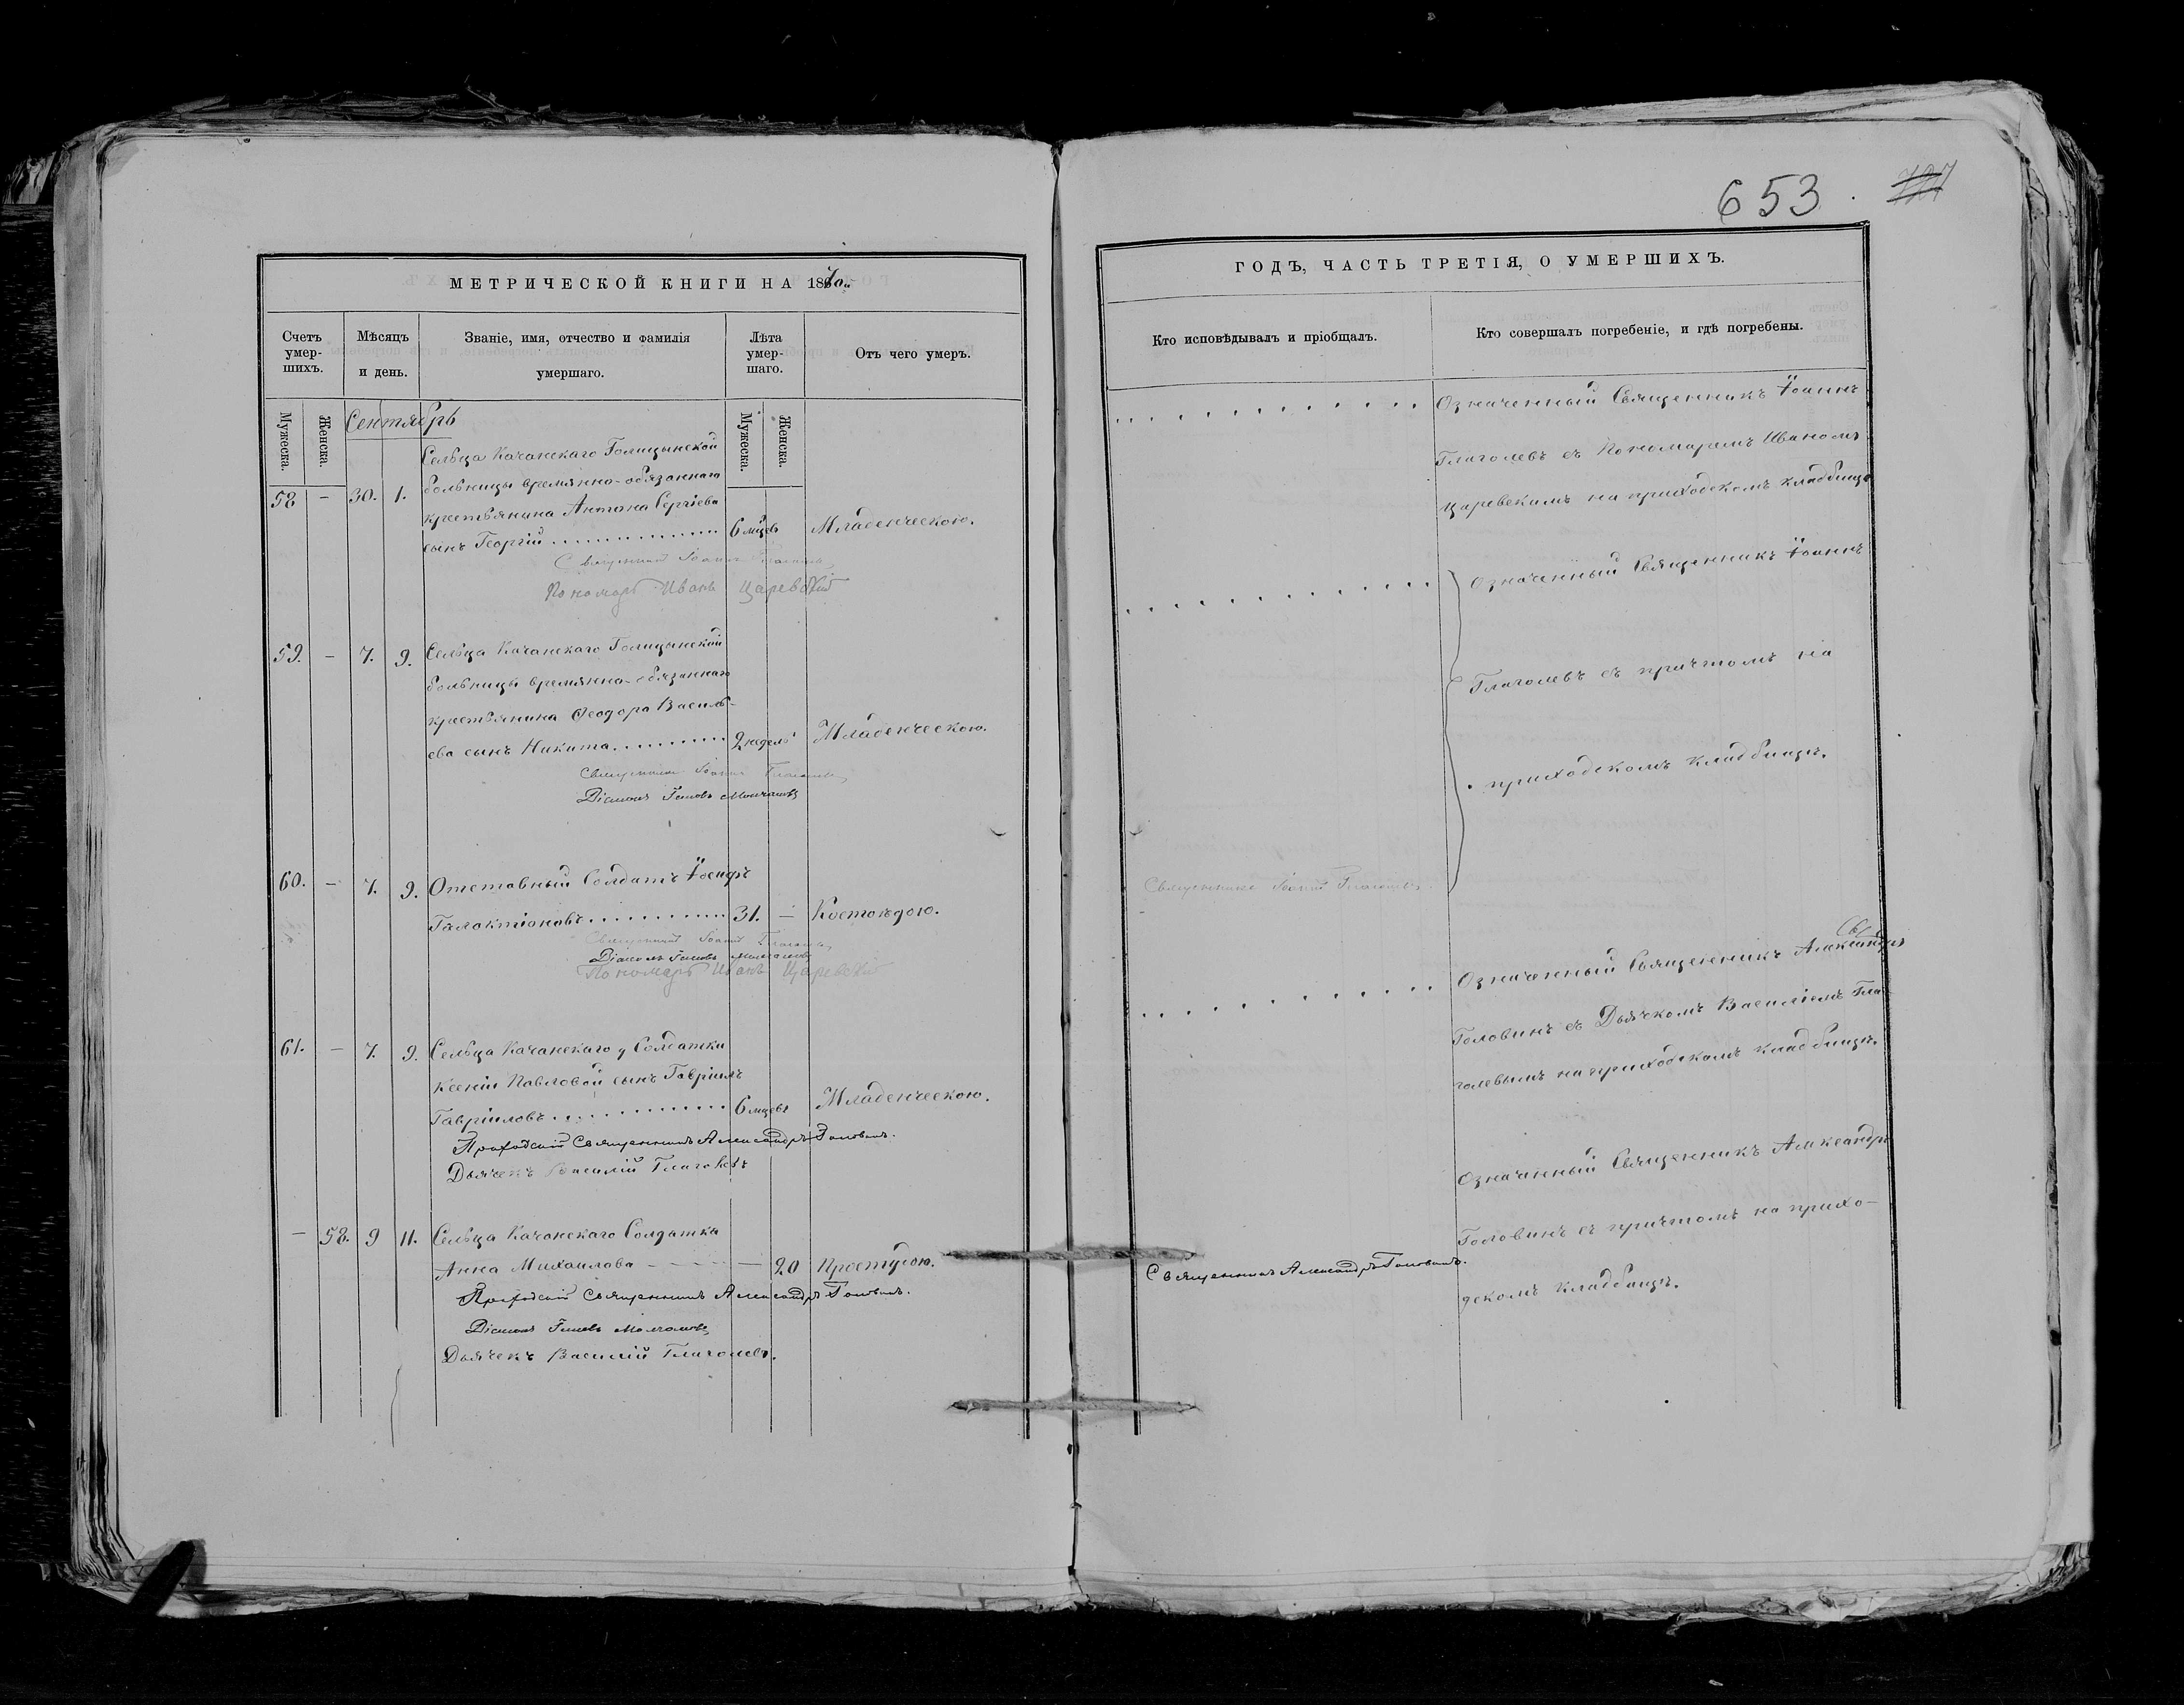 653. 727
МЕТРИЧЕСКОЙ КНИГИ НА 1870.
Счетъ умер-шихъ.
Мѣсяцъ и день.
Званіе, имя, отчество и фамилія умершаго.
Лѣта умер-шаго.
Отъ чего умеръ.
Мужеска. Женска.
Мужеска. Женска.
Сентябрь
Сельца Качанскаго Голицынской
58 – 30. 1. больницы времянно-обязаннаго
крестьянина Антона Сергіева
сынъ Георгій 6 мцевъ Младенческою.
Священникъ Іоаннъ Глаголевъ
Пономарь Иванъ Царевскій
59. – 7. 9. Сельца Качанскаго Голицынской
больницы времянно-обязаннаго
крестьянина Ѳеодора Василь-
ева сынъ Никита 2 недель Младенческою.
Священникъ Іоаннъ Глаголевъ
Діаконъ
60. – 7. 9. Отставный Солдатъ Іосифъ
Галактіоновъ 31. – Костоѣдою.
Священникъ Іоаннъ Глаголевъ
Діаконъ
Пономарь Иванъ Царевскій
61. – 7. 9. Сельца Качанскаго у Солдатки
Ксеніи Павловой сынъ Гавріилъ
Гавріиловъ 6 мцевъ Младенческою.
Приходскій Священникъ Александръ Головинъ.
Дьячекъ Василій Глаголевъ
– 58. 9 11. Сельца Качанскаго Солдатка
Анна Михаилова – 20 Простудою.
Приходскій Священникъ Александръ Головинъ.
Діаконъ
Дьячекъ Василій Глаголевъ.
ГОДЪ, ЧАСТЬ ТРЕТІЯ, О УМЕРШИХЪ.
Кто исповѣдывалъ и пріобщалъ.
Кто совершалъ погребеніе, и гдѣ погребены.
Означенный Священникъ Іоаннъ
Глаголевъ съ Пономаремъ Иваномъ
Царевскимъ на приходскомъ кладбищѣ
Означенный Священникъ Іоаннъ
Глаголевъ съ причтомъ на
приходскомъ кладбищѣ.
Священникъ Іоаннъ Глаголевъ.
Означенный Священникъ Александръ
Головинъ съ Дьячкомъ Василіемъ Гла-
голевымъ на приходскомъ кладбищѣ.
Означенный Священникъ Александръ
Головинъ съ причтомъ на прихо-
дскомъ кладбищѣ.
Священникъ Александръ Головинъ.